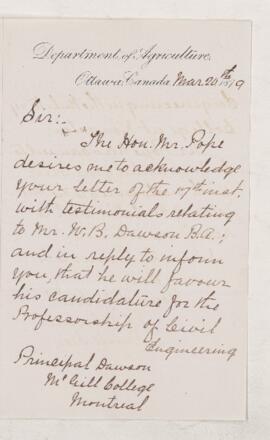 Department of Agriculture.
Ottawa, Canada Mar. 20th 1879
Sir:-
The Hon. Mr. Pope
desires me to acknowledge
your letter of the 17th inst.
with testimonials relating
to Mr. W. B. Dawson B.A.;
and in reply to inform
you, that he will favour
his candidature for the
Professorship of Civil
Engineering
Principal Dawson
McGill College
Montreal